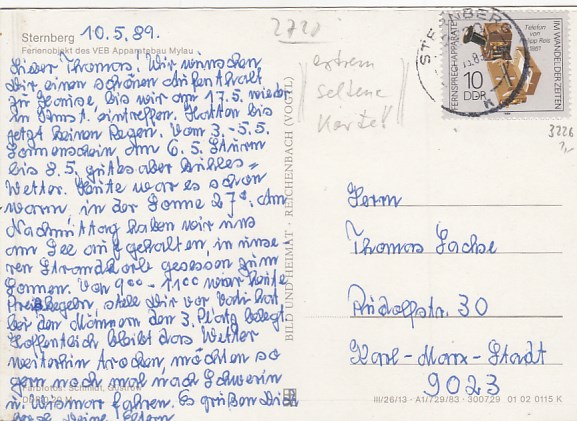 10.5.89.
Sternberg
Ferienobjekt des VEB Apparatebau Mylau
Lieber Thomas! Wir wünschen
Dir einen schönen Aufenthalt
zu Hause, bis wir am 17.5. wieder
in Karl-M.-St. eintreffen. Hatten bis
jetzt keinen Regen. Vom 3.-5.5.
Sonnenschein am 6.5. Sturm
bis 8.5. gutes aber kühles=
Wetter. Heute war es schon
warm, in der Sonne 27°. Am
Nachmittag haben wir uns
am See aufgehalten, in unse-
ren Strandkorb gesessen zum
Sonnen. Von 9⁰⁰-11⁰⁰ war heute
Preiskegeln, stell Dir vor Vati hat
bei den Männern den 3. Platz belegt
Hoffentlich bleibt das Wetter
weiterhin trocken, möchten so
gern noch mal nach Schwerin
u. Wismar fahren. Es grüßen Dich
Deine Eltern
Farbfotos: Schmidt, Güstrow
BILD UND HEIMAT · REICHENBACH (VOGTL)
2728
extrem
seltene
Karte!
STERNBERG
FERNSPRECHAPPARATE
IM WANDEL DER ZEITEN
Telefon
von
Philipp Reis
1861
10
DDR
3226
Herrn
Thomas Sachse
Rudolfstr. 30
Karl-Marx-Stadt
9023
III/26/13 · A1/729/83 · 300729 01 02 0115 K